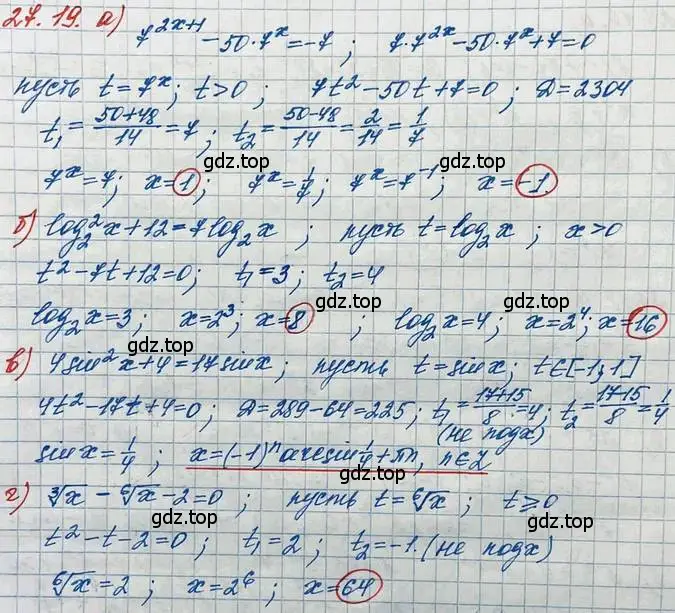 27.19. а) 7^{2x+1} - 50·7^x = -7 ; 7·7^{2x} - 50·7^x + 7 = 0
пусть t = 7^x ; t > 0 ; 7t² - 50t + 7 = 0 ; D = 2304
t₁ = (50+48)/14 = 7 ; t₂ = (50-48)/14 = 2/14 = 1/7
gdz.top
7^x = 7 ; x = 1 ; 7^x = 1/7 ; 7^x = 7^{-1} ; x = -1.
gdz.top gdz.top
б) log₂²x + 12 = 7log₂x ; пусть t = log₂x ; x > 0
t² - 7t + 12 = 0 ; t₁ = 3 ; t₂ = 4
gdz.top
log₂x = 3 ; x = 2³ ; x = 8 ; log₂x = 4 ; x = 2⁴ ; x = 16
gdz.top
в) 4sin²x + 4 = 17sinx ; пусть t = sinx ; t∈[-1;1]
4t² - 17t + 4 = 0 ; D = 289 - 64 = 225 ; t₁ = (17+15)/8 = 4 ; t₂ = (17-15)/8 = 1/4
(не подх)
sinx = 1/4 ; x = (-1)ⁿ arcsin 1/4 + πn, n∈Z
gdz.top gdz.top
г) ∛x - ⁶√x - 2 = 0 ; пусть t = ⁶√x ; t ⩾ 0
gdz.top
t² - t - 2 = 0 ; t₁ = 2 ; t₂ = -1. (не подх)
⁶√x = 2 ; x = 2⁶ ; x = 64
gdz.top